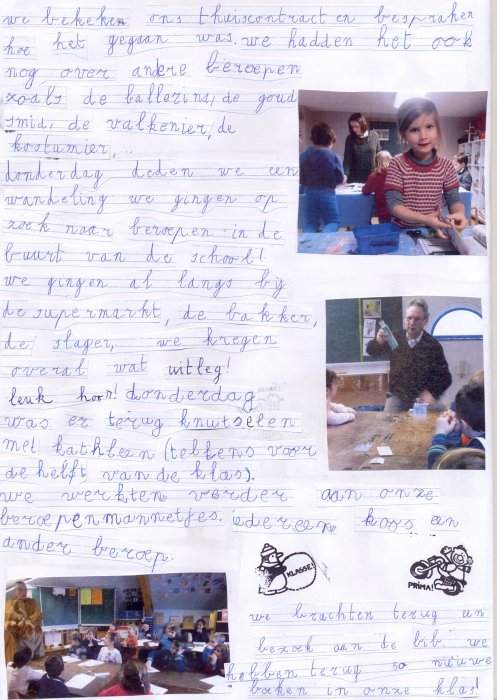 we bekeken ons thuiscontract en bespraken
hoe het gegaan was. we hadden het ook
nog over andere beroepen
zoals de ballerina, de goud
smid, de valkenier, de
kostumier, ...
donderdag deden we een
wandeling we gingen op
zoek naar beroepen in de
buurt van de school!
we gingen al langs bij
de supermarkt, de bakker,
de slager, we kregen
overal wat uitleg!
leuk hoor! donderdag
was er terug knutselen
met kathleen (telkens voor
de helft van de klas).
we werkten verder aan onze
beroepenmannetjes. iedereen koos een
ander beroep.
KLASSE!
PRIMA!
we brachten terug un
bezoek aan de bib. we
hebben terug 50 nieuwe
boeken in onze klas!